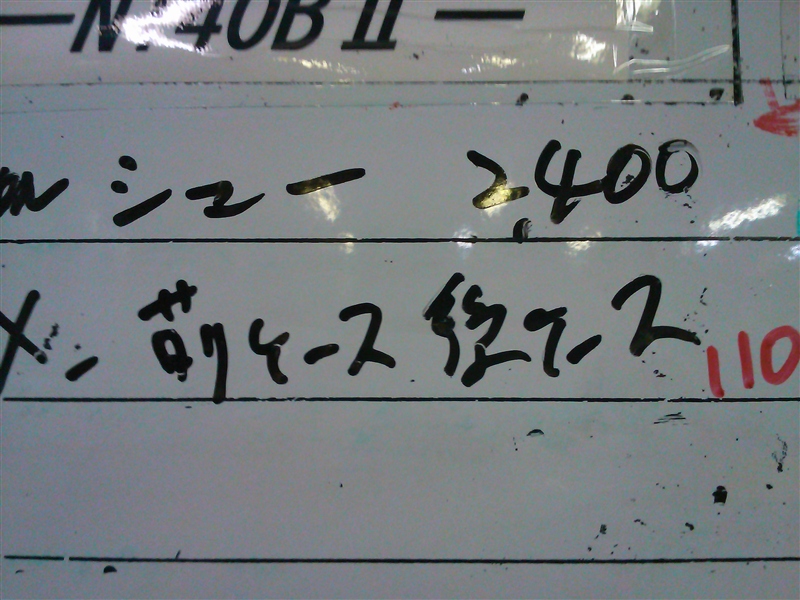 40B II
シュー 2,400
前ケース 後ケース 110